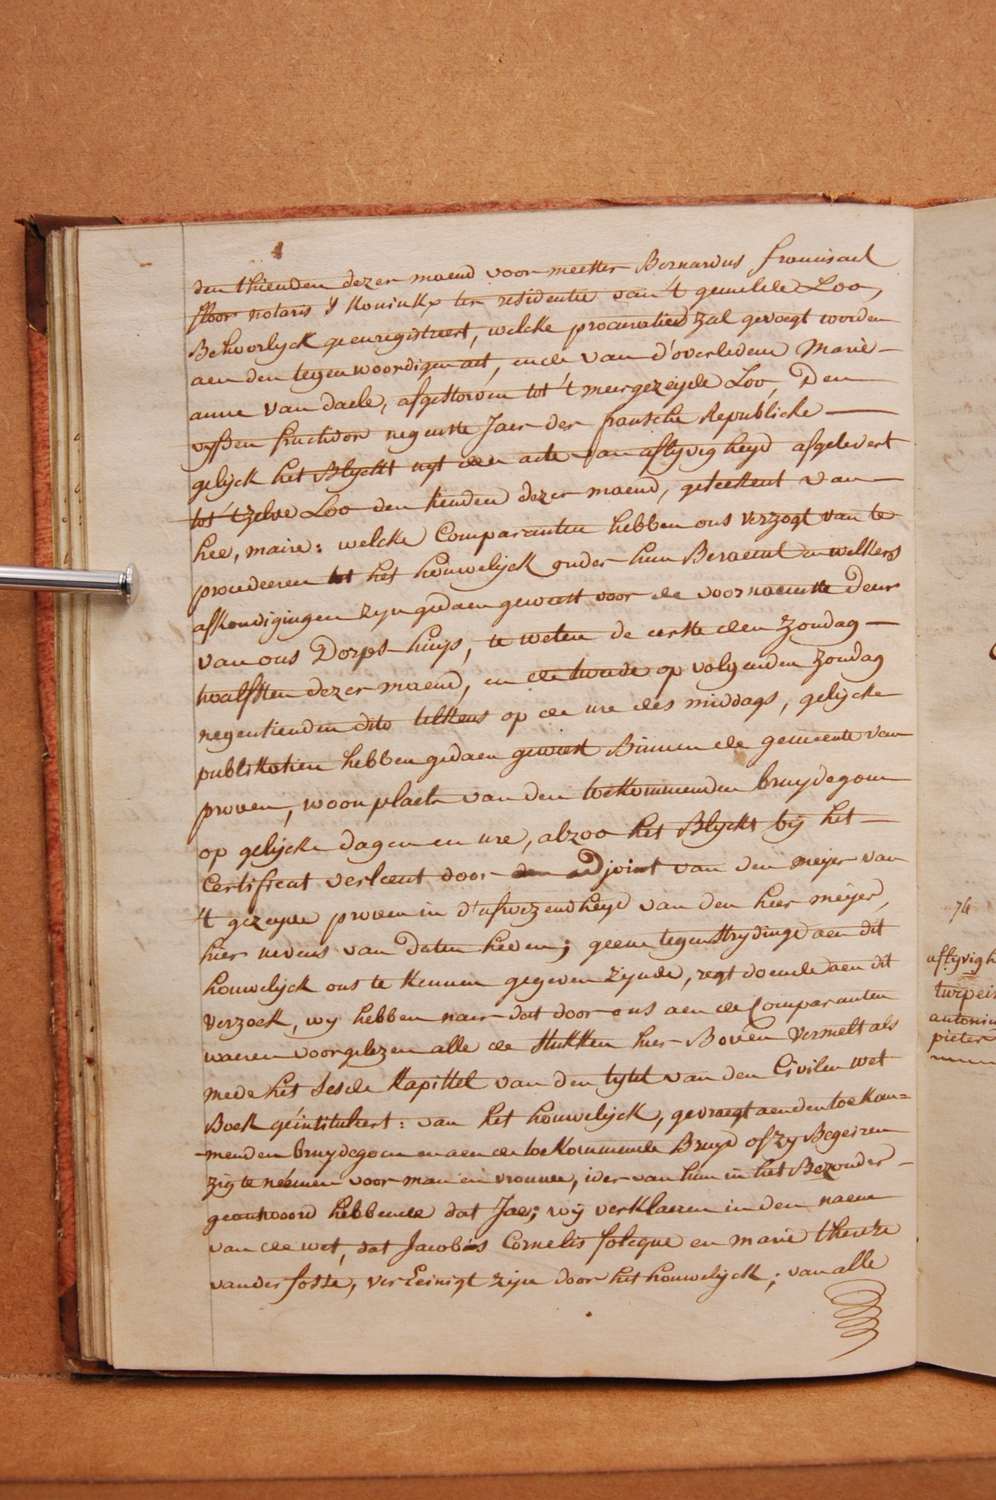 den thienden dezer maend voor meester Bernardus fransiscus
floor notaris S' Koninkx ter residentie van 't gemelde Loo,
Behoorlijck geenregistreert, welcke procuratie zal gevoegt worden
aen den tegenwoordigen act, ende van d'overledene Marie
anne van daele, afgestorven tot 't meergezeyde Loo, Den
vyfsten fructidor negenste Jaer der fransche Republicke
gelijck het Blijckt uyt den acte van aflyvigheyd afgelevert
tot 't zelve Loo den tienden dezer maend, geteekent van
hee, maire: welcke Comparanten hebben ons verzogt van te
procedeeren tot het houwelijck onder hun Beraemt en welkers
afkondigingen zyn gedaen geweest voor de voornaemste Deur
van ons Dorps-huys, te weten de eerste den zondag
twalfsten dezer maend, en de tweede op volgenden zondag
negentienden dito telkens op de ure des middags, gelijcke
publikatien hebben gedaen geweest Binnen de gemeente van
proven, woonplaets van den toekommenden bruydegom
op gelijcke dagen en ure, alzoo het Blijckt bij het
Certificat verleent door den adjoint van den meijer van
't gezeyde proven in d'afwezendheyd van den heer meijer,
hier nevens van daten heden; geene tegenstrydinge aen dit
houwelijck ons te kennen gegeven zynde, regt doende aen dit
verzoek, wy hebben naer dat door ons aen de Comparanten
waeren voorgelezen alle de stukken hier Boven vermelt als
mede het sesde kapittel van den tytel van den Civilen wet
Boek geïntituleert: van het houwelijck, gevraegt aen den toekom=
menden bruydegom en aen de toekommende Bruyd of zy Begeiren
zig te némen voor man en vrouwe, ider van hun in het Bezonder
geantwoord hebbende dat Jae; wy verklaeren in den naeme
van de wet, dat Jacobús Cornelis folcque en marie thereze
vander foste, vereinigt zijn door het houwelijck; van alle
74
aflyvigh
antonin
pieter